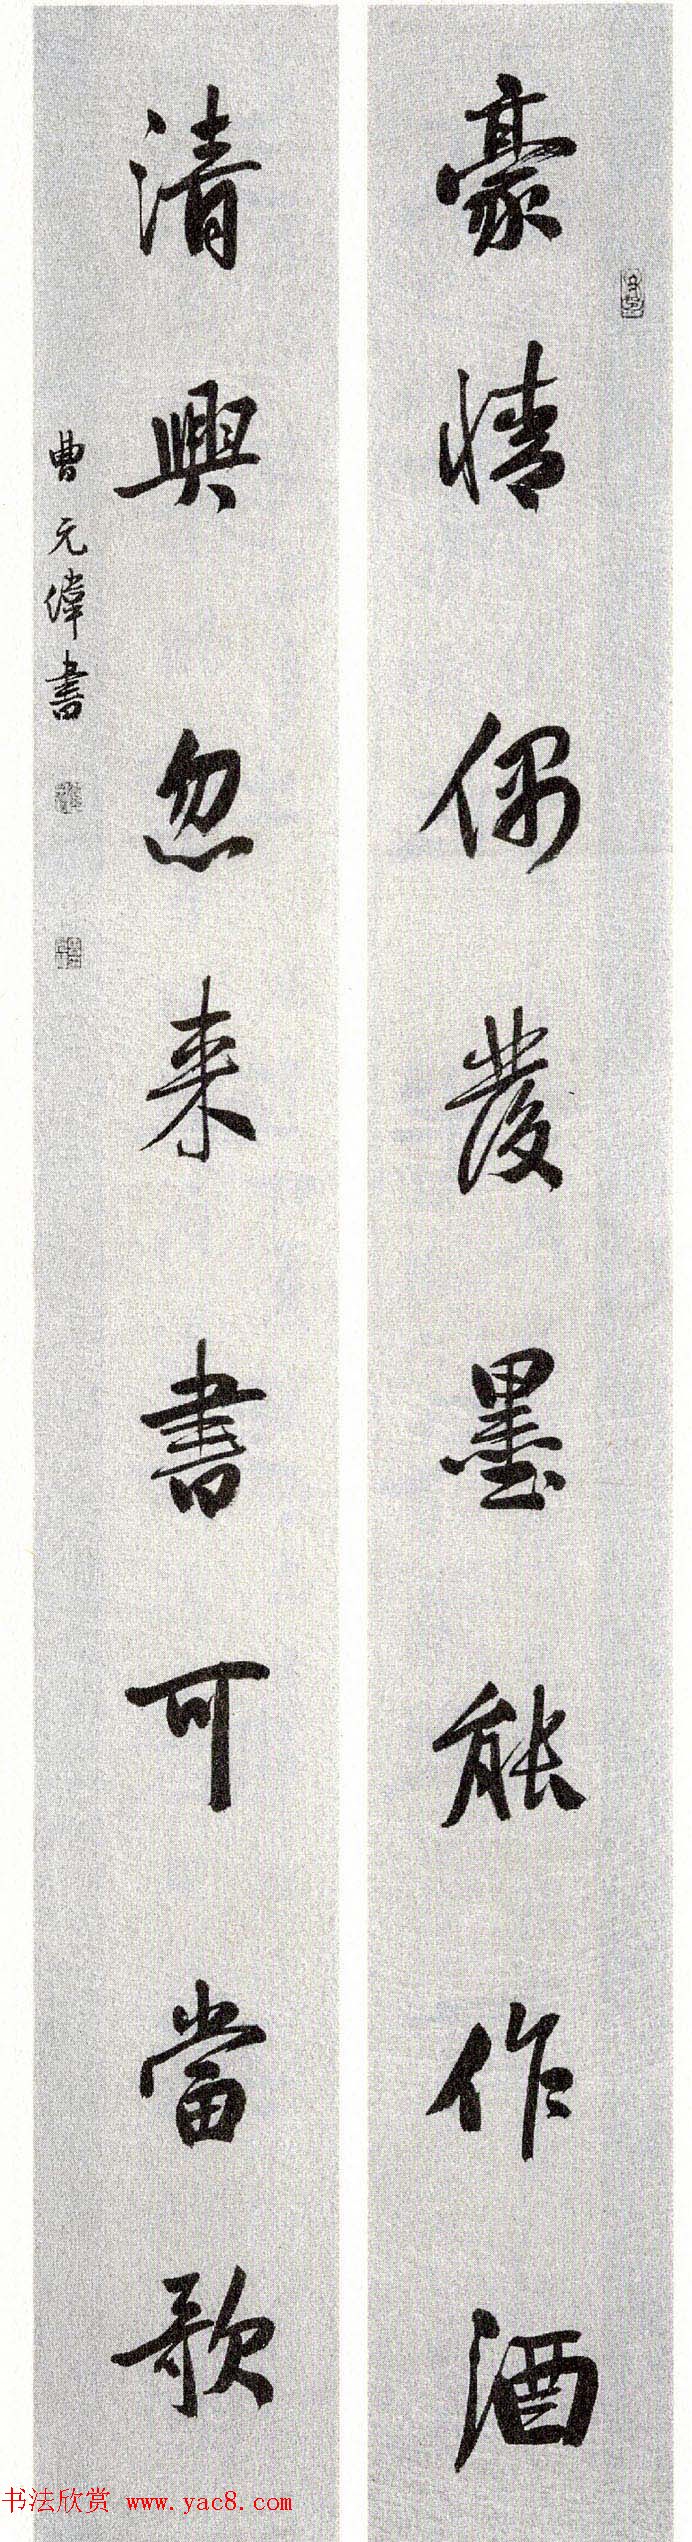 豪情偶發墨能作酒
清興忽来書可當歌
曹元偉書
书法欣赏 www.yac8.com